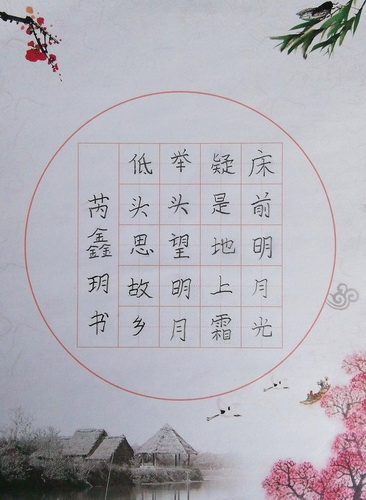 床前明月光
疑是地上霜
举头望明月
低头思故乡
芮鑫玥书